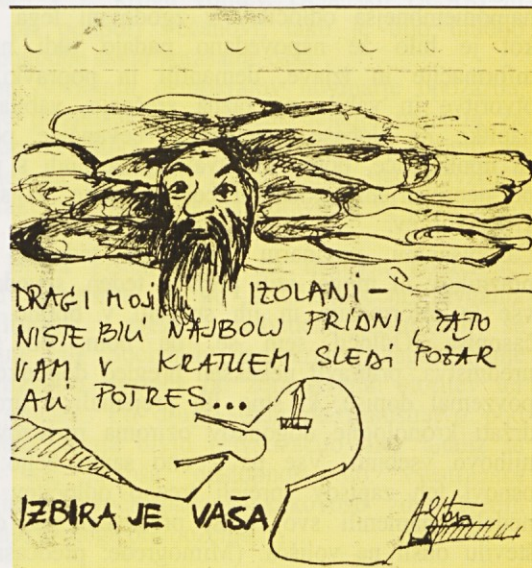 DRAGI MOJI IZOLANI –
NISTE BILI NAJBOLJ PRIDNI, ZATO
VAM V KRATKEM SLEDI POŽAR
ALI POTRES...
IZBIRA JE VAŠA